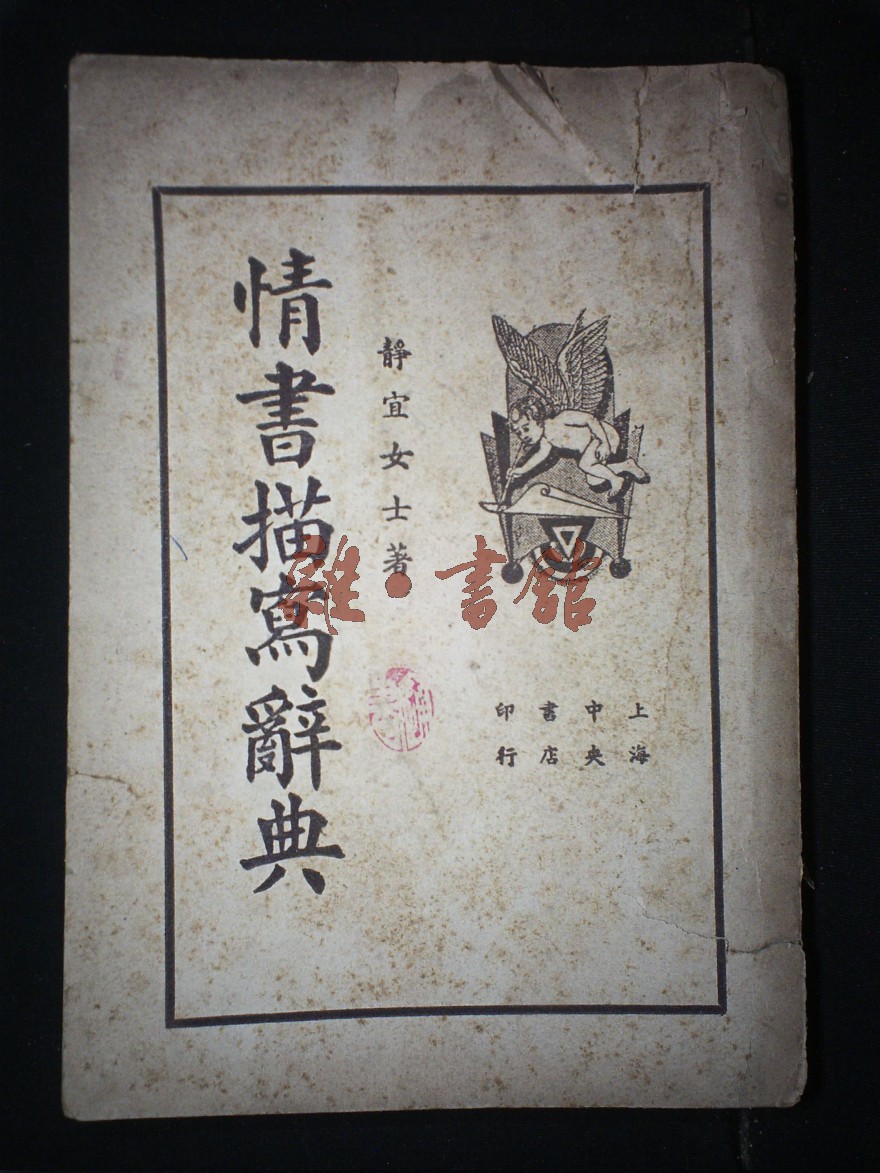 情書描寫辭典
靜宜女士著
上海
中央
書店
印行
雜·書館